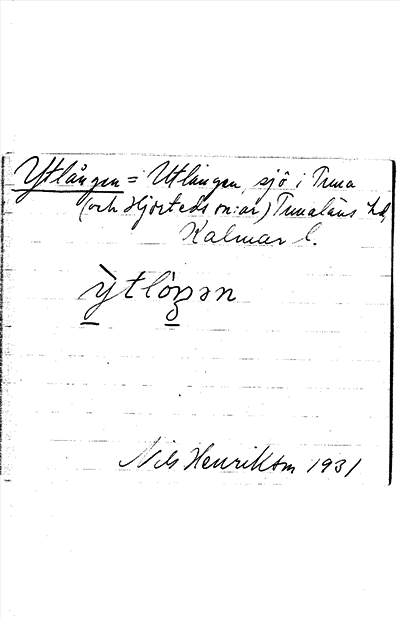 Ytlången = Utlången, sjö i Tuna
(och Hjorteds snar) Tunaläns hd,
Kalmar l.
ỳtlòŋən
Nils Henrikson 1931